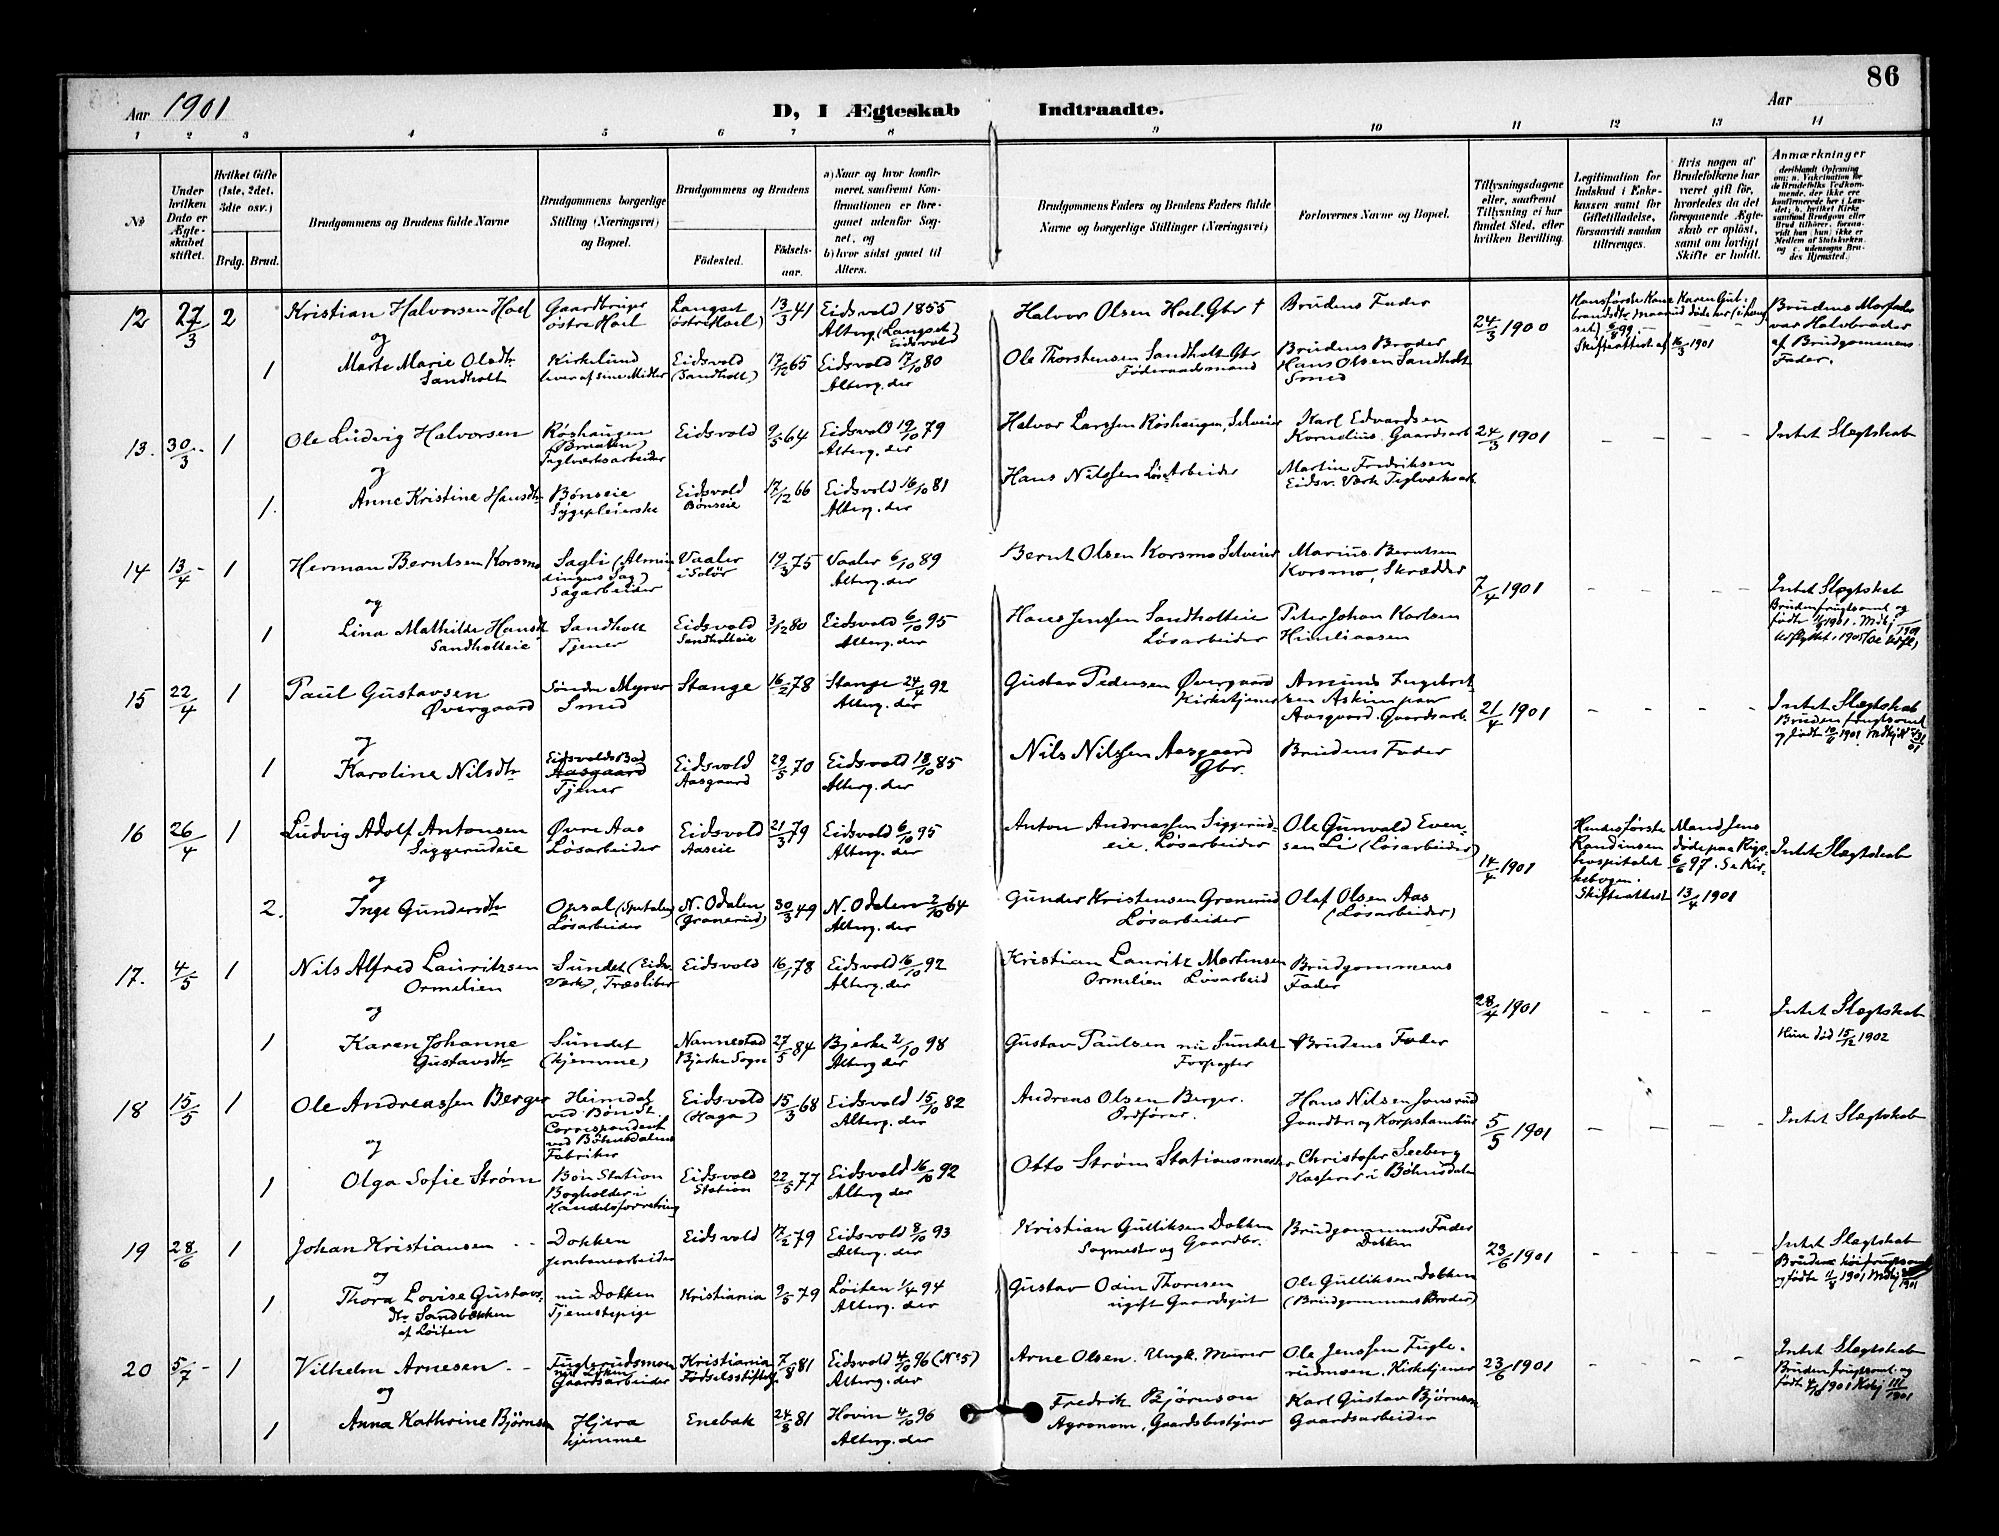 86
Aar 1901
D, I Ægteskab Indtraadte.
Aar
1 2 3 4 5 6 7 8 9 10 11 12 13 14
No
Under hvilken Dato er Ægteskabet stiftet.
Hvilket Gifte (1ste, 2det, 3die osv.)
Brdg. Brud.
Brudgommens og Brudens fulde Navne
Brudgommens borgerlige Stilling (Næringsvei) og Bopæl.
Brudgommens og Brudens
Fødested.
Fødselsaar.
a) Naar og hvor konfirmeret, saafremt Konfirmationen er foregaaet udenfor Sognet, og
b) hvor sidst gaaet til Alters.
Brudgommens Faders og Brudens Faders fulde Navne og borgerlige Stillinger (Næringsvei)
Forlovernes Navne og Bopæl.
Tillysningsdagene eller, saafremt Tillysning ei har fundet Sted, efter hvilken Bevilling.
Legitimation for Indskud i Enkekassen samt for Giftetilladelse, forsaavidt saadan tiltrænges.
Hvis nogen af Brudefolkene har været gift før, hvorledes da det foregaaende Ægteskab er opløst, samt om lovligt Skifte er holdt.
Anmærkninger
12 27/3 2 Kristian Halvorsen Hoel
Gaardbruger østre Hoel
Langset (østre Hoel) 13/3 41
Eidsvold 1855 Alterg. (Langset) Eidsvold
Halvor Olsen Hoel, Gbr †
Brudens Fader
24/3 1900
Skifteattest af 16/3 1901
Brudens Morfader var Halvbroder af Brudgommens Fader.
og
1 Marte Marie Olsdtr Sandholt
Kirkelund lever af sine Midler
Eidsvold (Sandholt) 17/12 65
Eidsvold 17/10 80 Alterg. der
Ole Thorstensen Sandholt Gbr Føderaadsmand
Brudens Broder Hans Olsen Sandholt Smed
13. 30/3 1 Ole Ludvig Halvorsen
Røshaugen (Braaten) Teglværksarbeider
Eidsvold 9/5 64
Eidsvold 19/10 79 Alterg. der
Halvor Larssen Røshaugen, Selveier
Karl Edvardsen Kornelius. Gaardsarb
24/3 1901
– – – –
Intet Slægtskab
og
1. Anne Kristine Hansdtr
Bønseie Sygepleierske
Eidsvold Bønseie 17/12 66
Eidsvold 16/10 81 Alterg. der
Hans Nilssen Løsarbeider
Martin Fredriksen Eidsv. Værk Teglværksarb
14 13/4 1 Herman Berntsen Korsmo
Sagli (Almindingens Sag) Sagarbeider
Vaaler i Solør 19/3 75
Vaaler 6/10 89 Alterg. der
Bernt Olsen Korsmo Selveier
Marius Berntsen Korsmo, Skrædder
7/4 1901
– – –
Intet Slægtskab
Bruden frugtsomt og
og
1 Lina Mathilde Hansdtr Sandholteie
Sandholt Tjener
Eidsvold Sandholteie 3/12 80
Eidsvold 6/10 95 Alterg. der
Hans Jenssen Sandholteie Løsarbeider
Peter Johan Karlsen Himliaasen
15 22/4 1 Paul Gustavsen Øvergaard
Søndre Myrer Smed
Stange 16/2 78
Stange 24/4 92 Alterg. der
Gustav Pedersen Øvergaard Kirketjener
Amund Engebretsen Askim paa Aasgaard. Gaardsarb.
21/4 1901
– – –
Intet Slægtskab
Bruden frugtsomt
og
1 Karoline Nilsdtr
Eidsvolds Bad Aasgaard Tjener
Eidsvold Aasgaard 29/5 70
Eidsvold 18/10 85 Alterg. der
Nils Nilssen Aasgaard Gbr.
Brudens Fader
16 26/4 1 Ludvig Adolf Antonsen Siggerudeie
Øvre Aas Løsarbeider
Eidsvold Aaseie 21/3 79
Eidsvold 6/10 95 Alterg. der
Anton Andreassen Siggerudeie, Løsarbeider
Ole Gunvald Evensen Li (Løsarbeider)
14/4 1901
Hendes første Mand Jens
Randinsen døde paa Rigshospitalet 6/6 97. Se Kirkebogen.
Skifteattest 13/4 1901
Intet Slægtskab
og
2. Inge Gundersdtr
Opsal Løsarbeider
N. Odalen (Granerud) 30/3 49
N. Odalen 2/10 64 Alterg. der
Gunder Kristensen Granerud Løsarbeider
Olaf Olsen Aas (Løsarbeider)
17. 4/5 1 Nils Alfred Lauritzsen Ormelien
Sundet (Eidsv. Værk), Træsliber
Eidsvold 16/1 78
Eidsvold 16/10 92 Alterg. der
Kristian Lauritz Martinsen Ormelien Løsarbeid
Brudgommens Fader
28/4 1901
– – –
Intet Slægtskab
Hun død 15/12 1902
og
1 Karen Johanne Gustavsdtr
Sundet (hjemme)
Nannestad Bjerke Sogn 27/5 84
Bjerke 2/10 98 Alterg der
Gustav Paulsen nu Sundet Forpagter
Brudens Fader
18 15/5 1 Ole Andreassen Berger
Heimdal ved Bøn St. Correspondent ved Bøhnsdalens Fabriker
Eidsvold (Haga) 15/3 68
Eidsvold 15/10 82 Alterg. der
Andreas Olsen Berger. Ordfører.
Hans Nilsen Jonsrud Gaardbr. og Korpstambur
5/5 1901
– – – –
Intet Slægtskab
og
1 Olga Sofie Strøm
Bøn Station Bogholder i Handelsforretning
Eidsvold Station 22/5 77
Eidsvold 16/10 92 Alterg. der
Otto Strøm Stationsmester
Christofer Seeberg Kasserer i Bøhnsdalen
19 28/6 1 Johan Kristiansen
Dokken Jernbanearbeider
Eidsvold 17/2 79
Eidsvold 8/10 93 Alterg. der
Kristian Gulliksen Dokken Sagmester og Gaardbr.
Brudgommens Fader Dokken
23/6 1901
– – – –
Intet Slægtskab
og
1 Thora Lovise Gustavsdtr Sandbakken af Løiten
nu Dokken Tjenestepige
Kristiania 9/5 79
Løiten 1/4 94 Alterg. der
Gustav Odin Thoresen ugift Gaardsgut
Ole Gulliksen Dokken (Brudgommens Broder)
20 5/7 1 Vilhelm Arnesen
Fuglerudsmoen Gaardsarbeider
Kristiania Fødselsstiftelse 7/8 81
Eidsvold 4/10 96 (No 5) Alterg. der
Arne Olsen. Ungk. Murer
Ole Jenssen Fuglerudmoen, Kirketjener
23/6 1901
– – – –
Intet Slægtskab
Bruden frugtsomt. og
og
1 Anna Kathrine Bjørnsen
Hjera hjemme
Enebak 24/3 81
Hovin 4/10 96 Alterg. der
Fredrik Bjørnson Agronom, Gaardsbestyrer
Karl Gustav Bjørnsen Gaardsarbeider